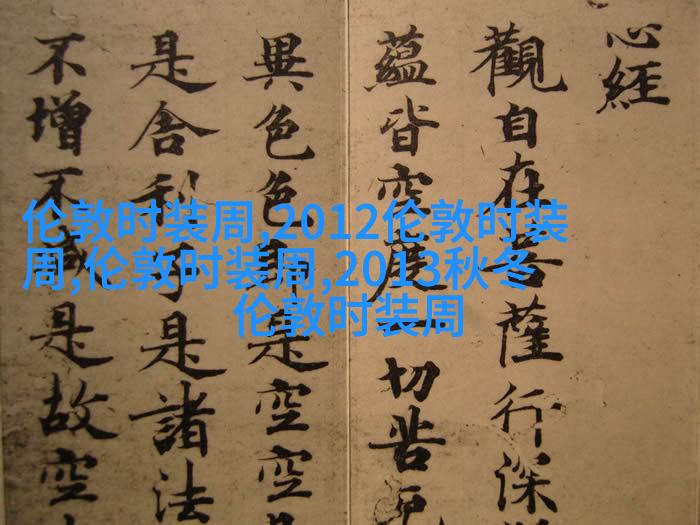 心經
觀自在菩薩行深
蘊皆空度一切苦厄
異色色即是空空
是舍利子是諸法
不增不減是故空
伦敦时装周,2012伦敦时装
周,伦敦时装周,2013秋冬
伦敦时装周